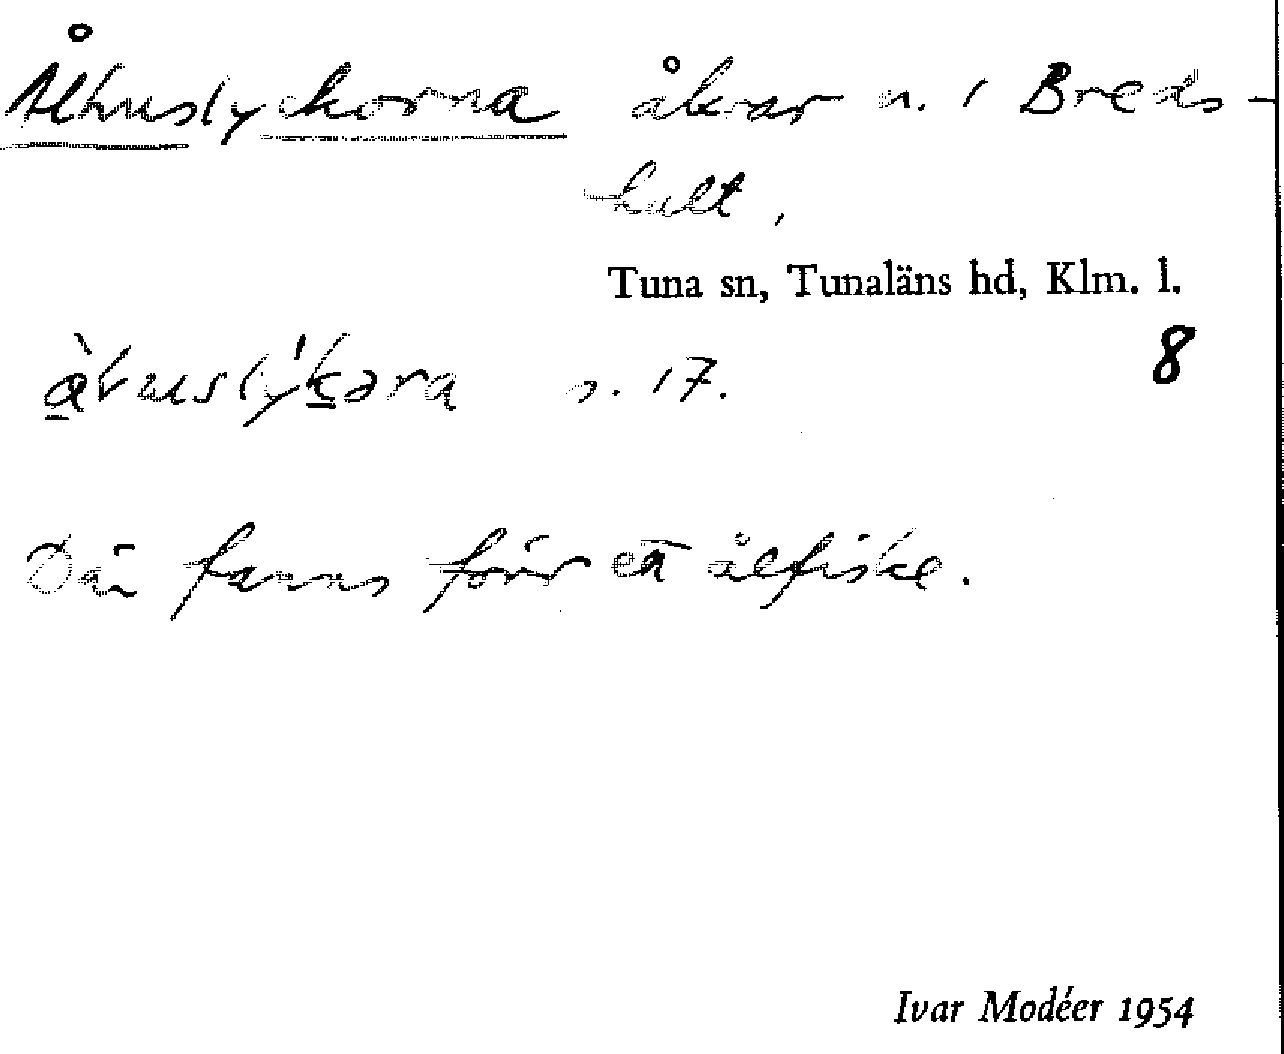 Ålhuslyckorna åkrar n. i Breds-
hult,
Tuna sn, Tunaläns hd, Klm. l.
8
s. 17.
Där fanns förr ett ålfiske.
Ivar Modéer 1954